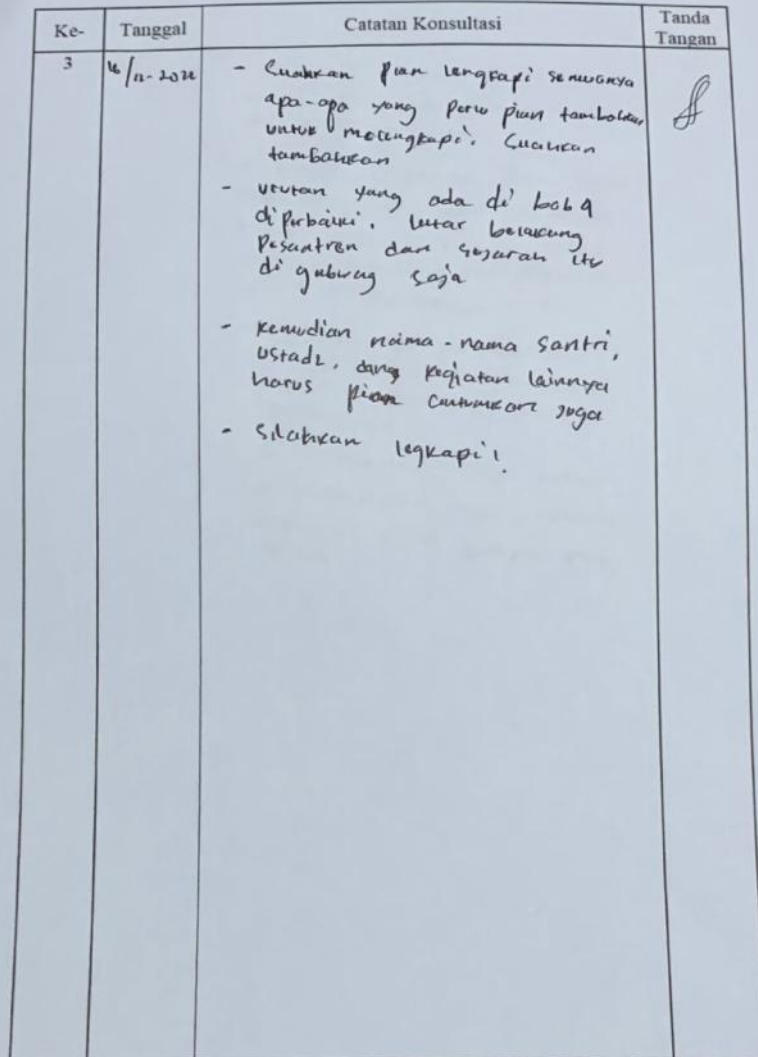 Ke- Tanggal Catatan Konsultasi Tanda Tangan
3
- Silahkan pian lengkapi semuanya
apa-apa yang perlu pian tambahkan
untuk melengkapi. Silahkan
tambahkan
- urutan yang ada di bab 4
diperbaiki. latar belakang
Pesantren dan sejarah itu
di gabung saja
- Kemudian nama-nama santri,
ustadz, dang kegiatan lainnya
harus pian cantumkan juga
- Silahkan legkapi!